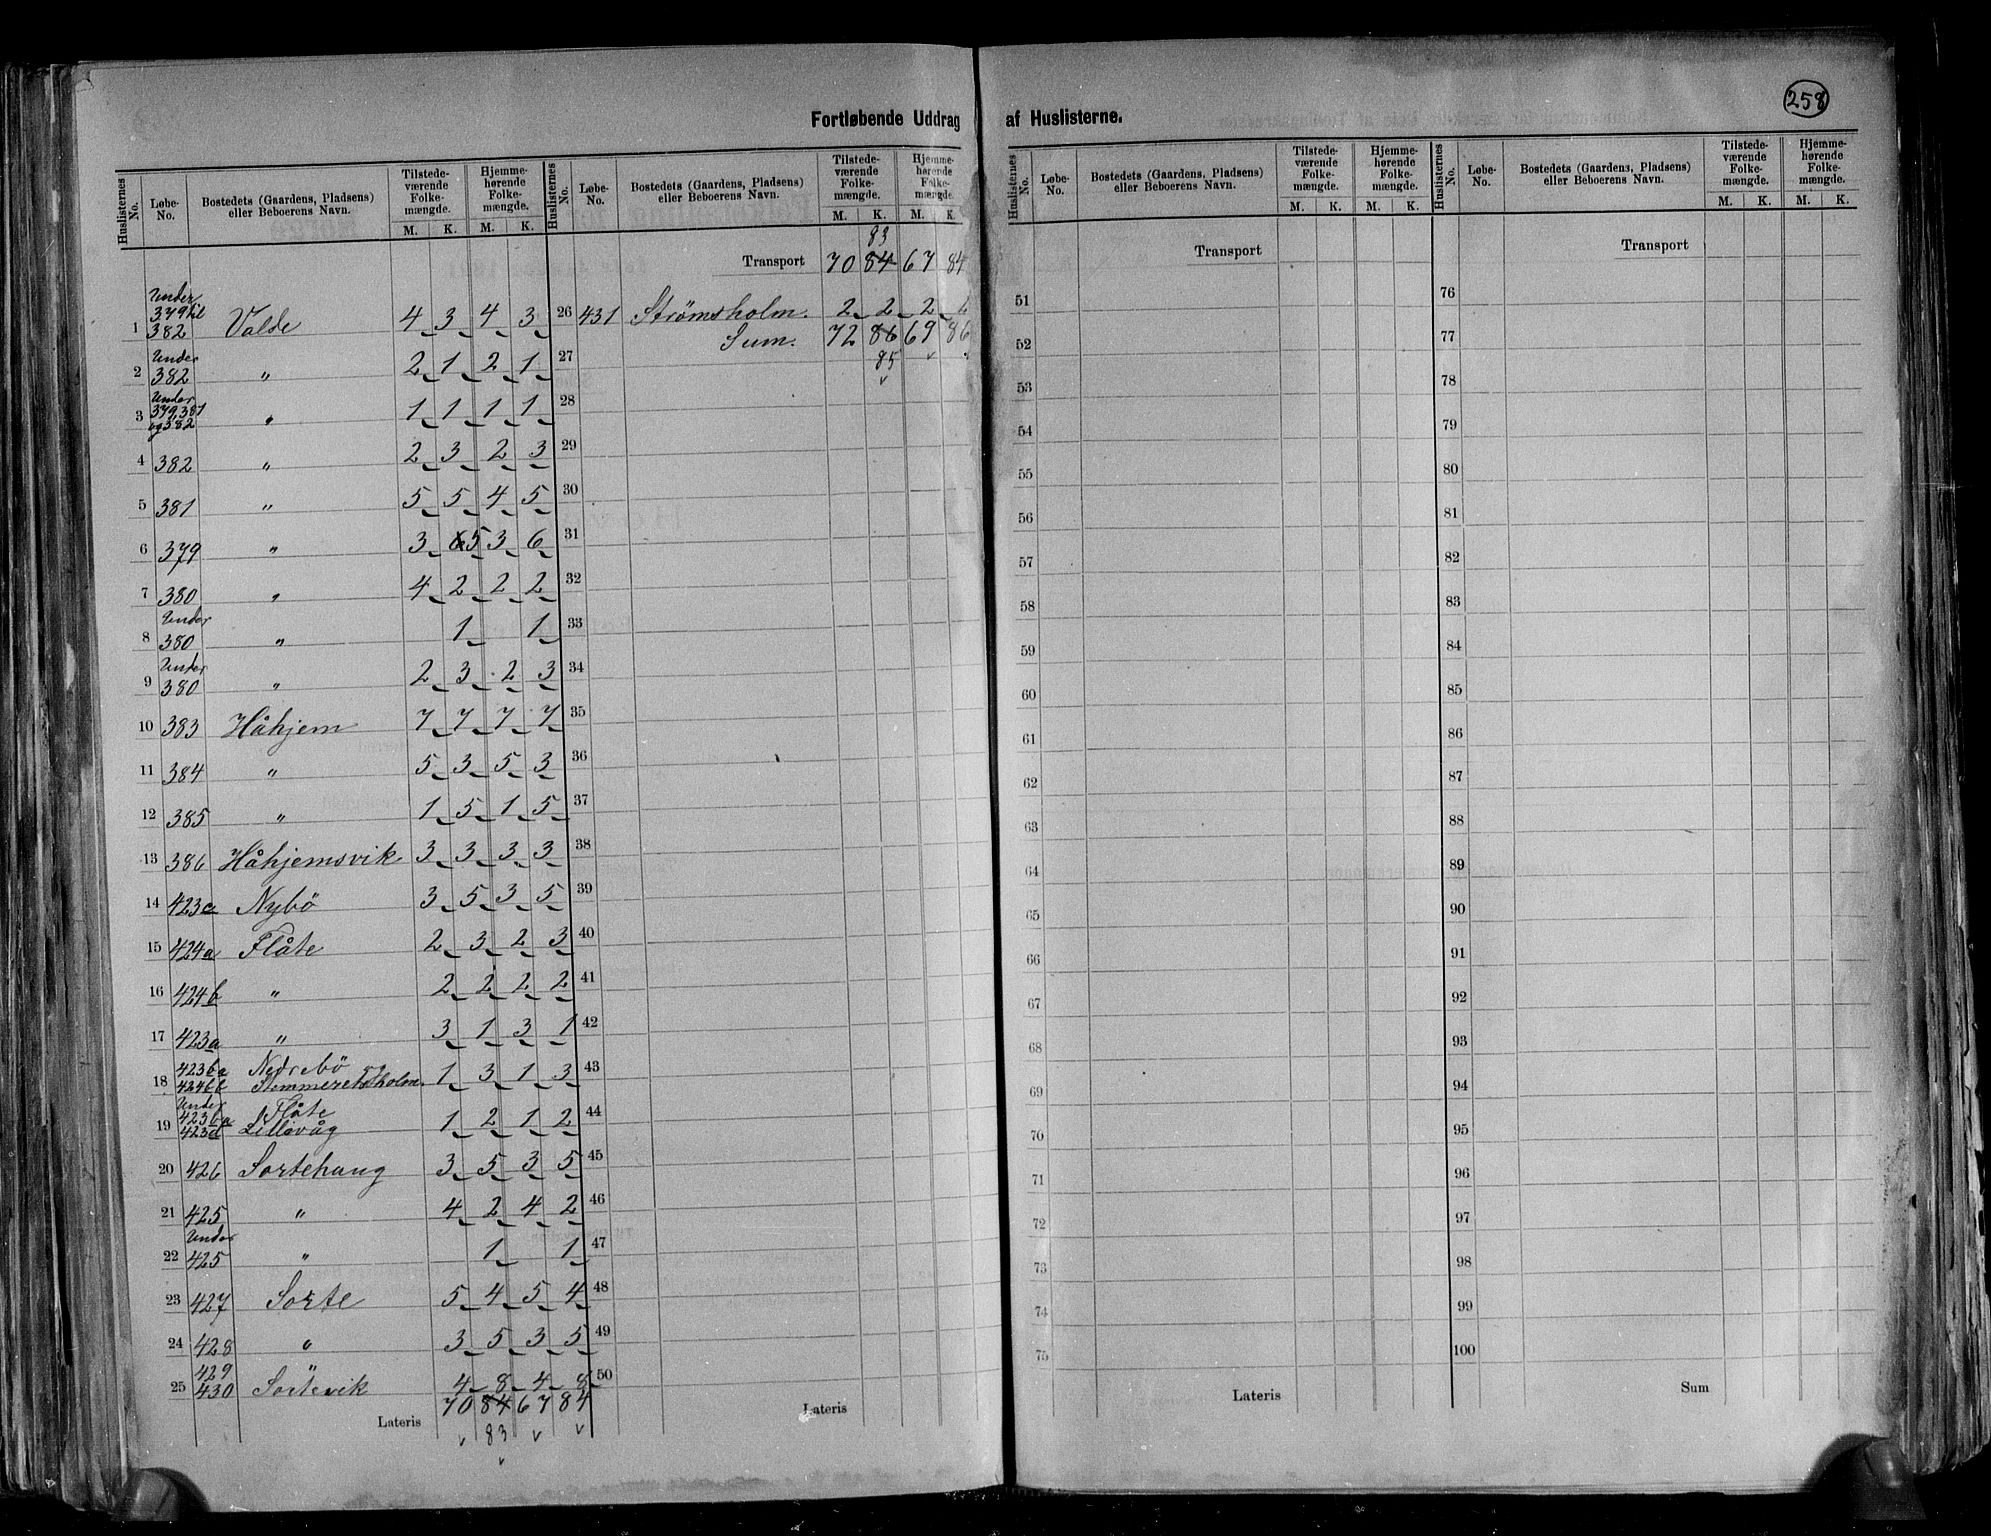 258
Fortløbende Uddrag af Huslisterne.
Huslisternes No. Løbe-No. Bostedets (Gaardens, Pladsens) eller Beboerens Navn. Tilstedeværende Folkemængde. M. K. Hjemmehørende Folkemængde. M. K.
1 Under 379 til 382 Valde 4 3 4 3
2 Under 382 " 2 1 2 1
3 Under 379,381 og 382 " 1 1 1 1
4 382 " 2 3 2 3
5 381 " 5 5 4 5
6 379 " 3 6 5 3 6
7 380 " 4 2 2 2
8 Under 380 " 1 1
9 Under 380 " 2 3 2 3
10 383 Håhjem 7 7 7 7
11 384 " 5 3 5 3
12 385 " 1 5 1 5
13 386 Håhjemsvik 3 3 3 3
14 423c Nybö 3 5 3 5
15 424a Flåte 2 3 2 3
16 424b " 2 2 2 2
17 423a " 3 1 3 1
18 423ba 424bb Nedrebö 1 3 1 3
19 Under 423ba 423d Flåte Lillevåg 1 2 1 2
20 426 Sortehaug 3 5 3 5
21 425 " 4 2 4 2
22 Under 425 " 1 1
23 427 Sorte 5 4 5 4
24 428 " 3 5 3 5
25 429 430 Sortevik 4 8 4 8
Lateris 70 84 67 84
83
Huslisternes No. Løbe-No. Bostedets (Gaardens, Pladsens) eller Beboerens Navn. Tilstedeværende Folkemængde. M. K. Hjemmehørende Folkemængde. M. K.
83
Transport 70 84 67 84
26 431 Strømsholm. 2 2 2 2
Sum. 72 86 69 86
27 85
28
29
30
31
32
33
34
35
36
37
38
39
40
41
42
43
44
45
46
47
48
49
50
Lateris
Huslisternes No. Løbe-No. Bostedets (Gaardens, Pladsens) eller Beboerens Navn. Tilstedeværende Folkemængde. M. K. Hjemmehørende Folkemængde. M. K.
Transport
51
52
53
54
55
56
57
58
59
60
61
62
63
64
65
66
67
68
69
70
71
72
73
74
75
Lateris
Huslisternes No. Løbe-No. Bostedets (Gaardens, Pladsens) eller Beboerens Navn. Tilstedeværende Folkemængde. M. K. Hjemmehørende Folkemængde. M. K.
Transport
76
77
78
79
80
81
82
83
84
85
86
87
88
89
90
91
92
93
94
95
96
97
98
99
100
Sum